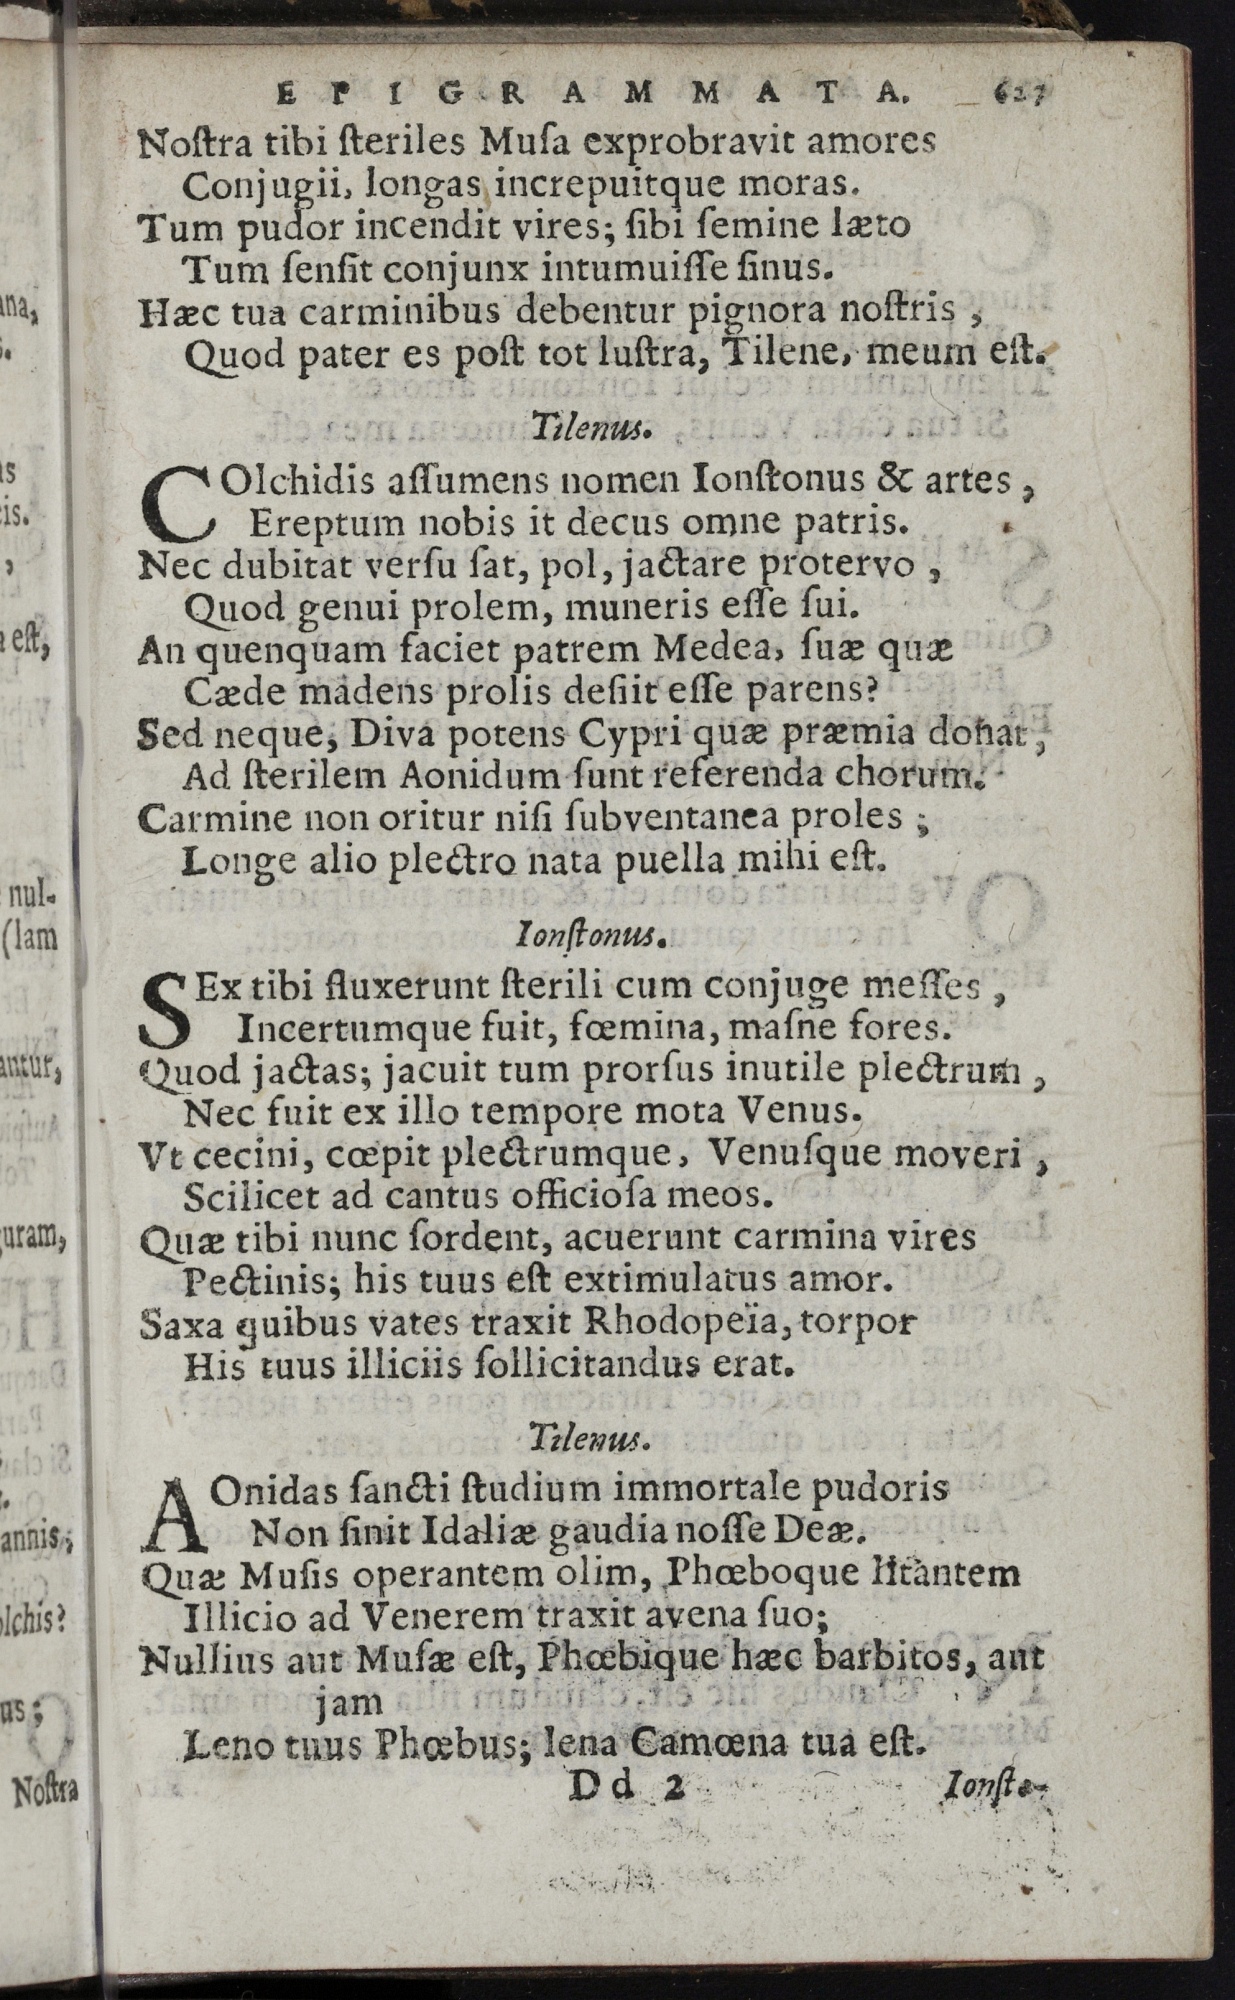 EPIGRAMMATA. 627
Noſtra tibi ſteriles Muſa exprobravit amores
Conjugii, longas increpuitque moras.
Tum pudor incendit vires; ſibi ſemine læto
Tum ſenſit conjunx intumuiſſe ſinus.
Hæc tua carminibus debentur pignora noſtris ,
Quod pater es poſt tot luſtra, Tilene, meum eſt.
Tilenus.
COlchidis aſſumens nomen Ionſtonus & artes ,
Ereptum nobis it decus omne patris.
Nec dubitat verſu ſat, pol, jactare protervo ,
Quod genui prolem, muneris eſſe ſui.
An quenquam faciet patrem Medea, ſuæ quæ
Cæde madens prolis deſiit eſſe parens?
Sed neque, Diva potens Cypri quæ præmia donat ,
Ad ſterilem Aonidum ſunt referenda chorum.
Carmine non oritur niſi ſubventanea proles ;
Longe alio plectro nata puella mihi eſt.
Ionſtonus.
SEx tibi fluxerunt ſterili cum conjuge meſſes ,
Incertumque fuit, fœmina, maſne fores.
Quod jactas; jacuit tum prorſus inutile plectrum ,
Nec fuit ex illo tempore mota Venus.
Vt cecini, cœpit plectrumque, Venuſque moveri ,
Scilicet ad cantus officioſa meos.
Quæ tibi nunc ſordent, acuerunt carmina vires
Pectinis; his tuus eſt extimulatus amor.
Saxa quibus vates traxit Rhodopeïa, torpor
His tuus illiciis ſollicitandus erat.
Tilenus.
AOnidas ſancti ſtudium immortale pudoris
Non ſinit Idaliæ gaudia noſſe Deæ.
Quæ Muſis operantem olim, Phœboque litantem
Illicio ad Venerem traxit avena ſuo;
Nullius aut Muſæ eſt, Phœbique hæc barbitos, aut
jam
Leno tuus Phœbus; lena Camœna tua eſt.
Dd 2 Ionſto-
ana,
s.
is.
,
a eſt,
nul-
(lam
antur,
guram,
annis,
olchis?
us;
Noſtra